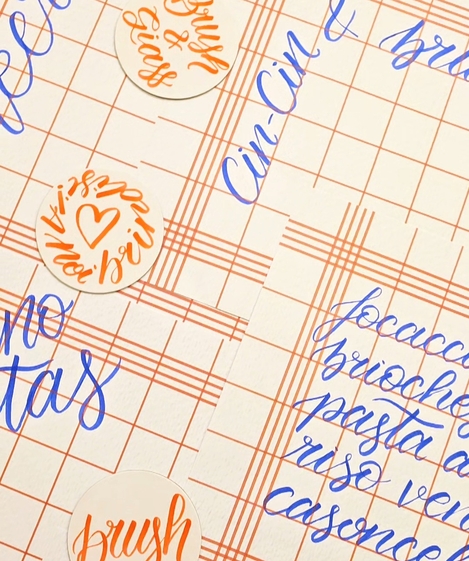 Brush
&
Cin-Cin &
bru
A noi, brindisi
no
tas
focacc
brioches
pasta a
riso ven
casonce
brush